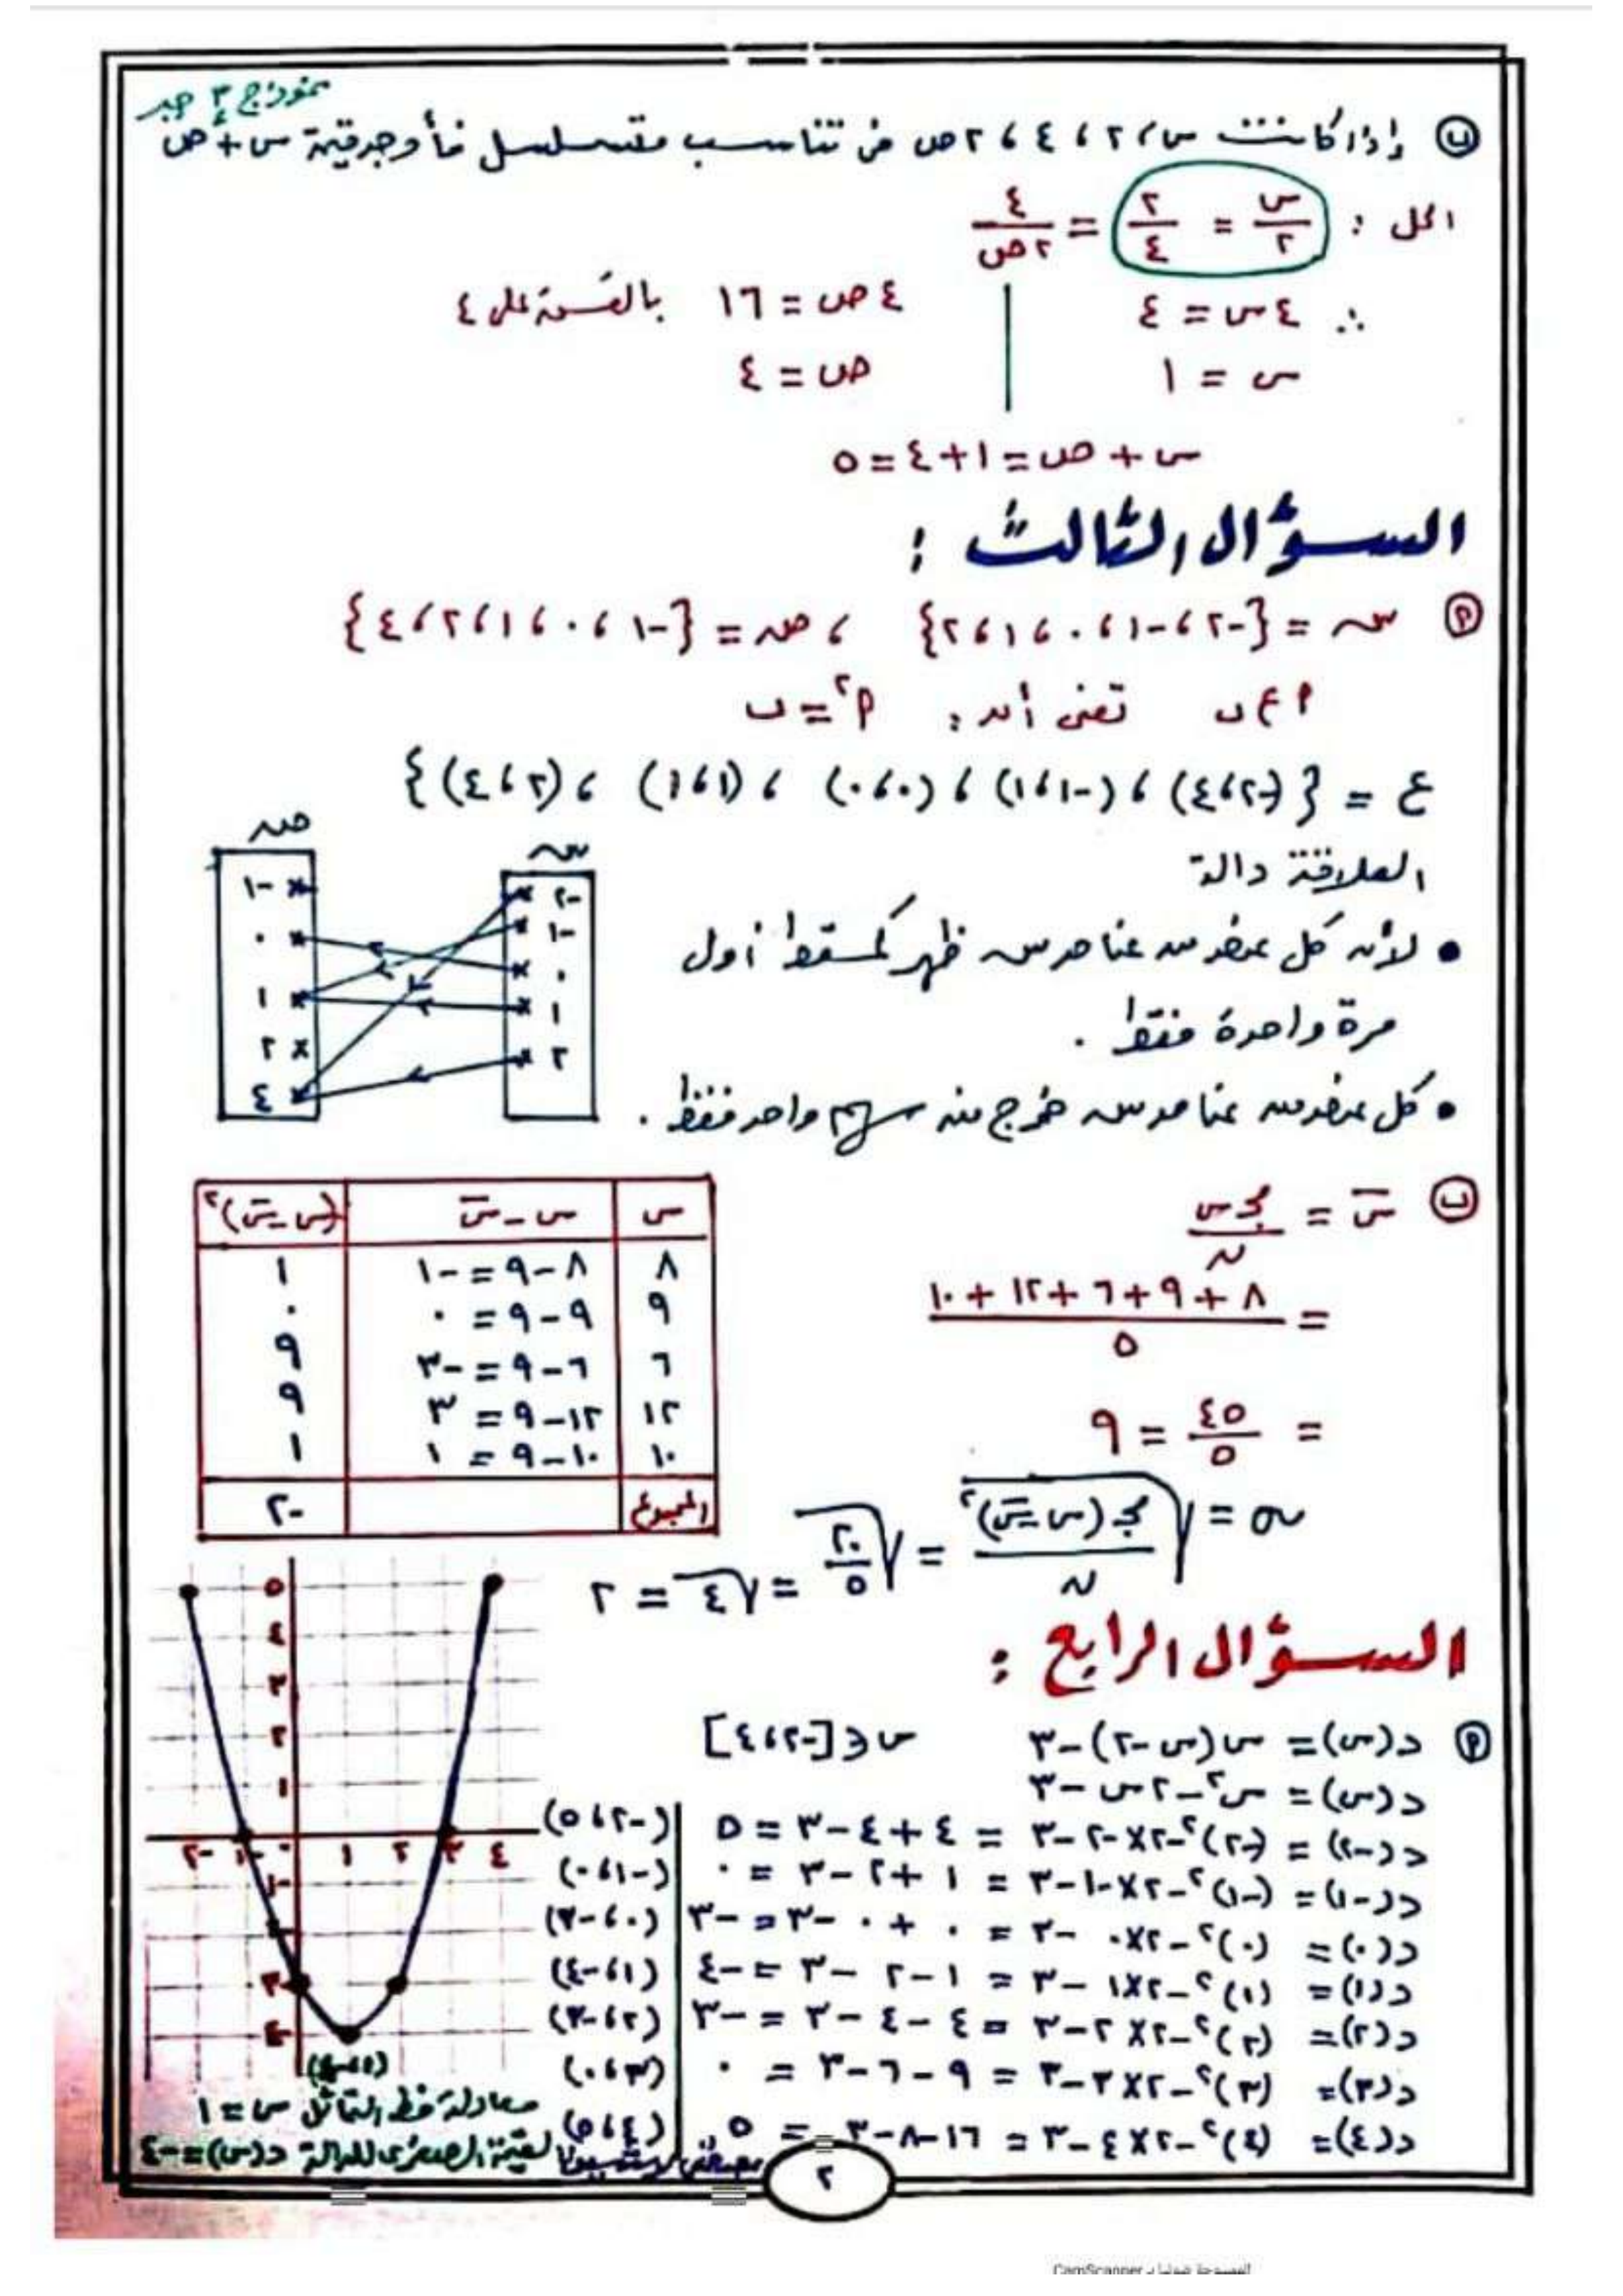 نموذج ٣ جبر
ب إذا كانت س، ٢، ٤، ٢ص في تناسب متسلسل فأوجد قيمة س + ص
الحل : س/٢ = ٢/٤ = ٤/٢ص
∴ ٤س = ٤
س = ١
٤ص = ١٦ بالقسمة على ٤
ص = ٤
س + ص = ١ + ٤ = ٥
السؤال الثالث :
أ س = {-٢، -١، ٠، ١، ٢} ، ص = {-١، ٠، ١، ٢، ٤}
أ ع ب تعنى أن : أ² = ب
ع = {(-٢، ٤)، (-١، ١)، (٠، ٠)، (١، ١)، (٢، ٤)}
العلاقة دالة
• لأن كل عنصر من عناصر س ظهر كمسقط أول
مرة واحدة فقط .
• كل عنصر من عناصر س خرج منه سهم واحد فقط .
س
-٢
-١
٠
١
٢
ص
-١
٠
١
٢
٤
ب س̄ = مجـ س / ن
= ٨ + ٩ + ٦ + ١٢ + ١٠ / ٥
= ٤٥/٥ = ٩
س | س - س̄ | (س - س̄)²
٨ | ٨ - ٩ = -١ | ١
٩ | ٩ - ٩ = ٠ | ٠
٦ | ٦ - ٩ = -٣ | ٩
١٢ | ١٢ - ٩ = ٣ | ٩
١٠ | ١٠ - ٩ = ١ | ١
المجموع | ٢٠
σ = √(مجـ (س - س̄)² / ن) = √(٢٠/٥) = √٤ = ٢
السؤال الرابع :
أ د(س) = س(س - ٢) - ٣ س ∈ [-٢، ٤]
د(س) = س² - ٢س - ٣
د(-٢) = (-٢)² - ٢×-٢ - ٣ = ٤ + ٤ - ٣ = ٥ (-٢، ٥)
د(-١) = (-١)² - ٢×-١ - ٣ = ١ + ٢ - ٣ = ٠ (-١، ٠)
د(٠) = (٠)² - ٢×٠ - ٣ = ٠ + ٠ - ٣ = -٣ (٠، -٣)
د(١) = (١)² - ٢×١ - ٣ = ١ - ٢ - ٣ = -٤ (١، -٤)
د(٢) = (٢)² - ٢×٢ - ٣ = ٤ - ٤ - ٣ = -٣ (٢، -٣)
د(٣) = (٣)² - ٢×٣ - ٣ = ٩ - ٦ - ٣ = ٠ (٣، ٠)
د(٤) = (٤)² - ٢×٤ - ٣ = ١٦ - ٨ - ٣ = ٥ (٤، ٥)
٥
٤
٣
٢
١
-٢ -١ ٠ ١ ٢ ٣ ٤
-١
-٣
-٤
(١، -٤)
معادلة خط التماثل س = ١
القيمة الصغرى للدالة د(س) = -٤
٢
الممسوحة ضوئيا بـ CamScanner